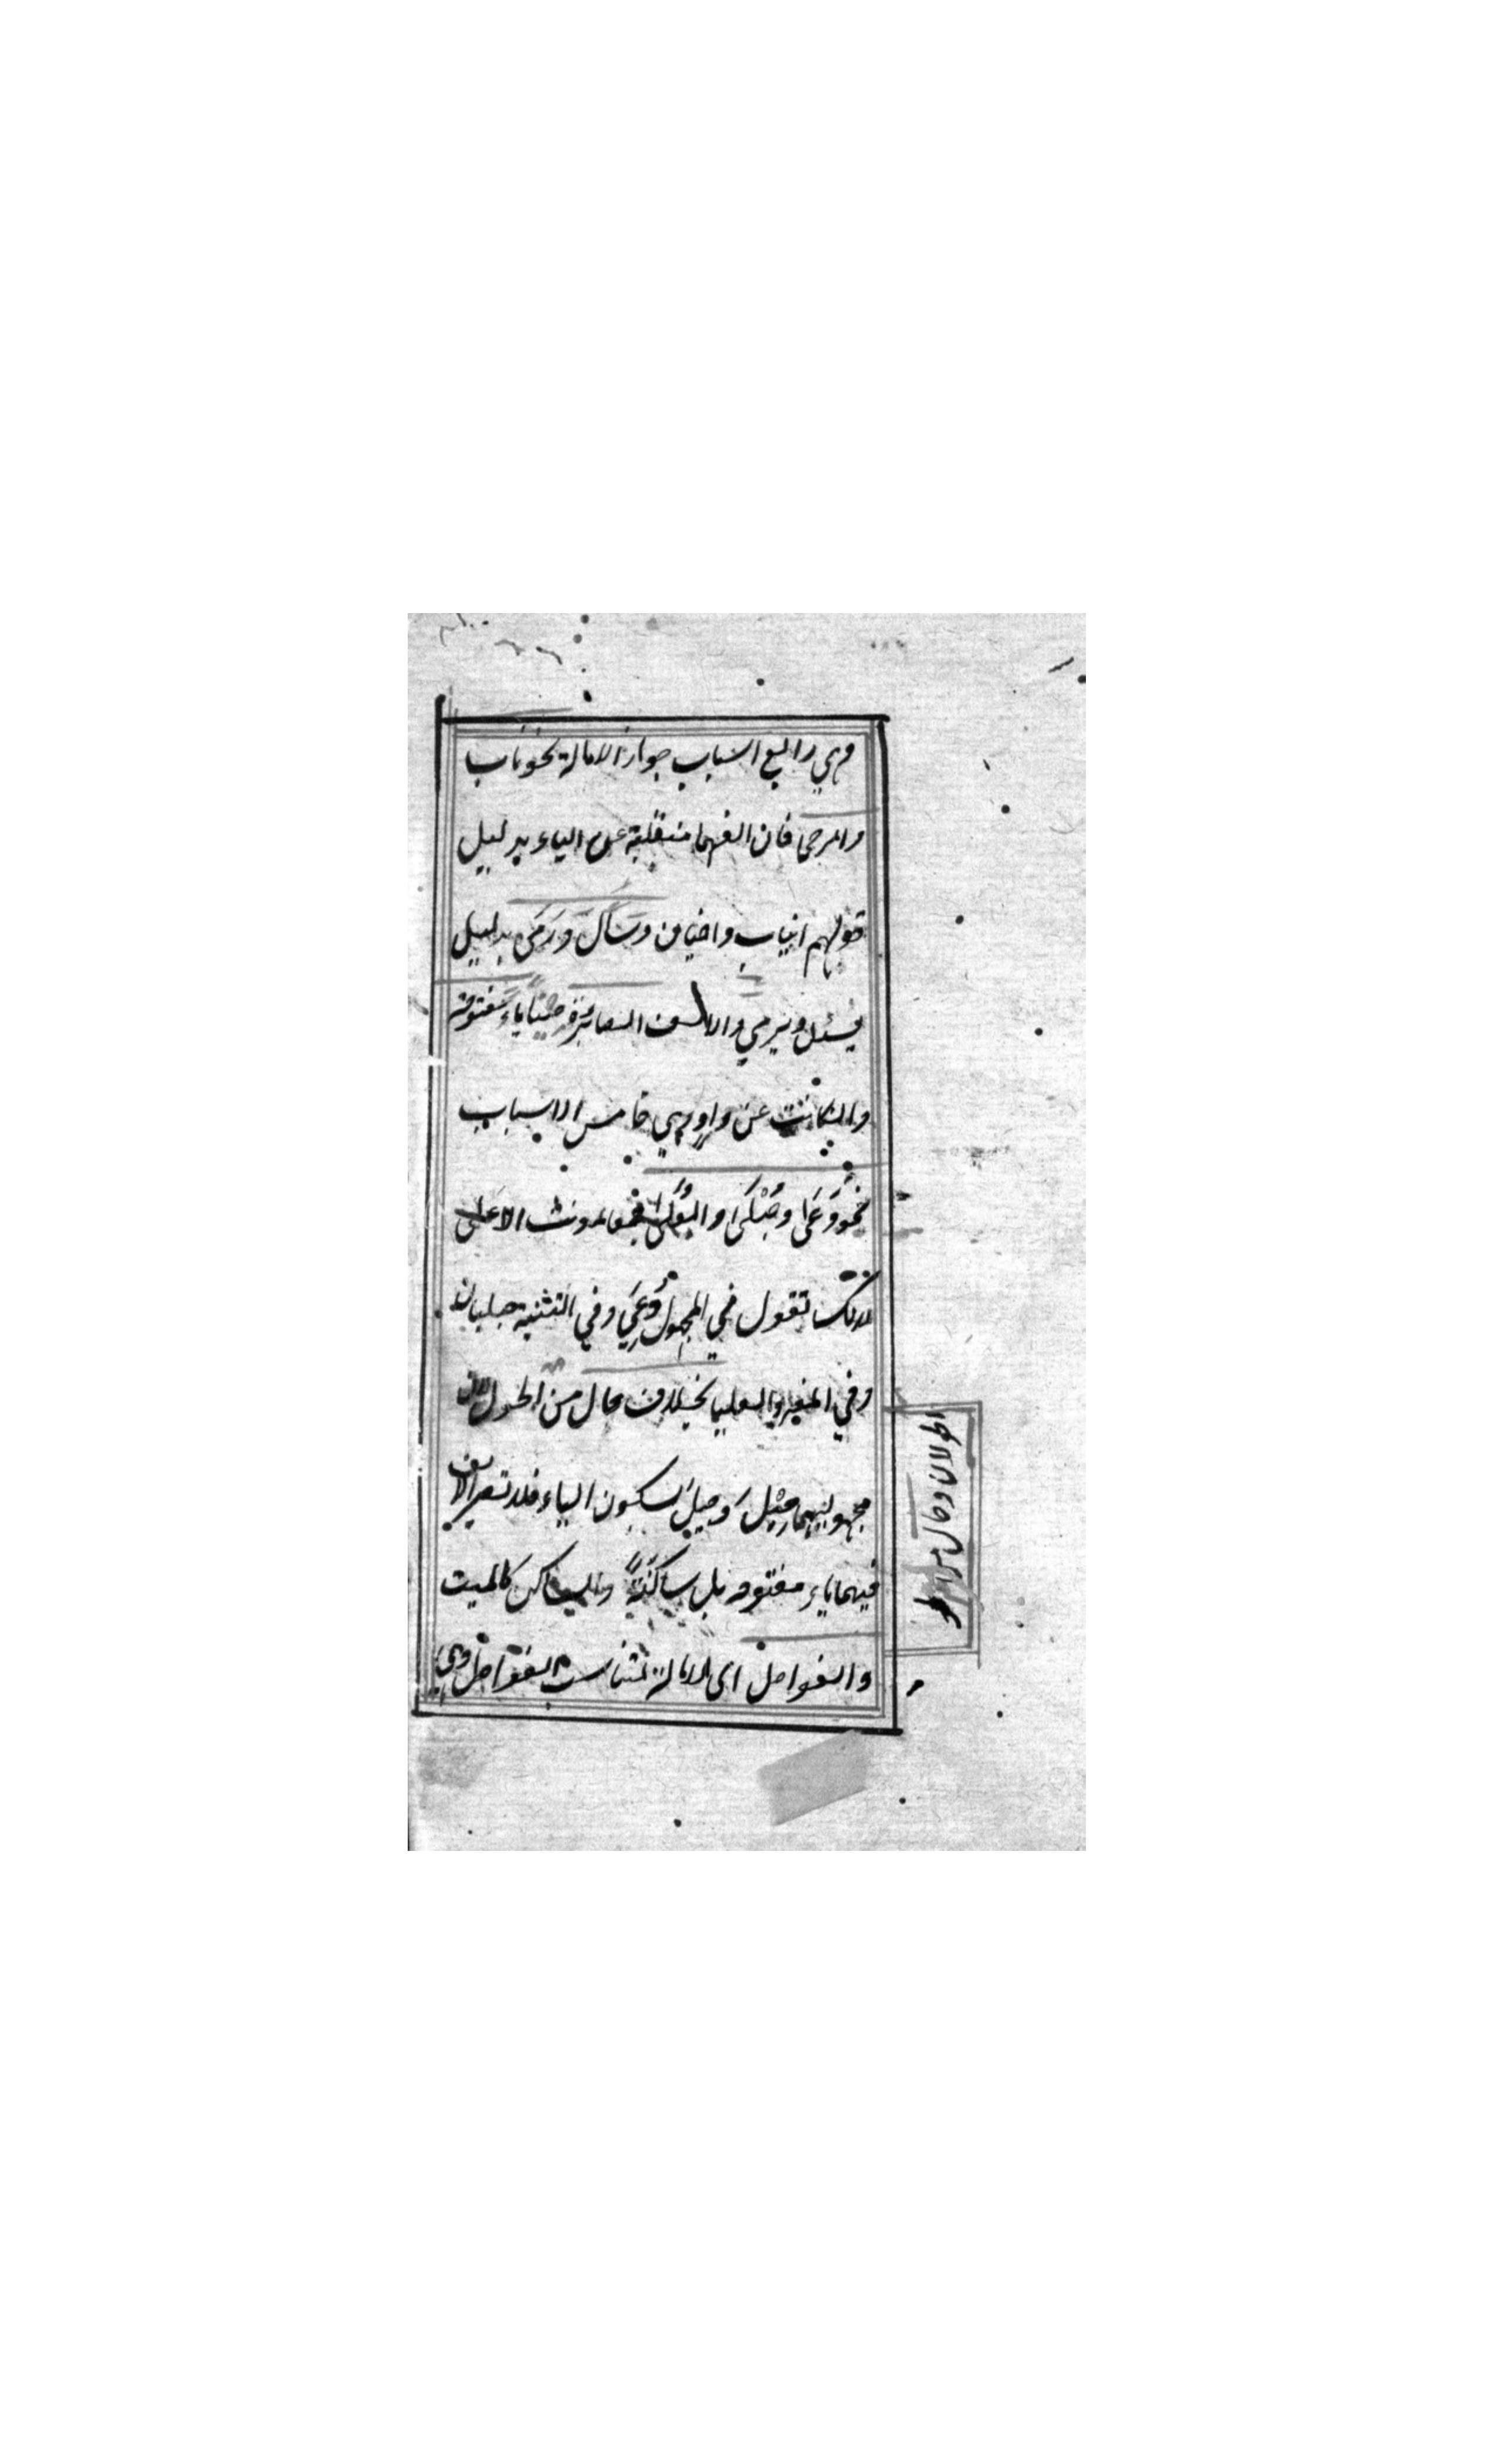 وهي رابع اسباب جواز الامالة نحو ناب
والرحى فان الفهما منقلبة عن الياء بدليل
قولهم انياب واخياف وسَالَ وَرَمَى بدليل
يسئل ويرمي والالف الصايرة حيناً ياءً مفتوحة
وان كانت عن واو وهي خامس الاسباب
نحو دَعَا وحُبْلَى والعُلَى جمعا لمونث الاعلى
لانك تقول في المجهول دُعِيَ وفي التثنية حبليان
وفي المفرد العليا بخلاف جال من الجول لان
مجهوليهما قِيْلَ وحِيلَ بسكون الياء فلا تصير الالف
فيهما ياء مفتوحه بل ساكنةً والساكن كالميت
والفواصل اى الامالة لتناسب الفواصل وهي
الجولان وحال من